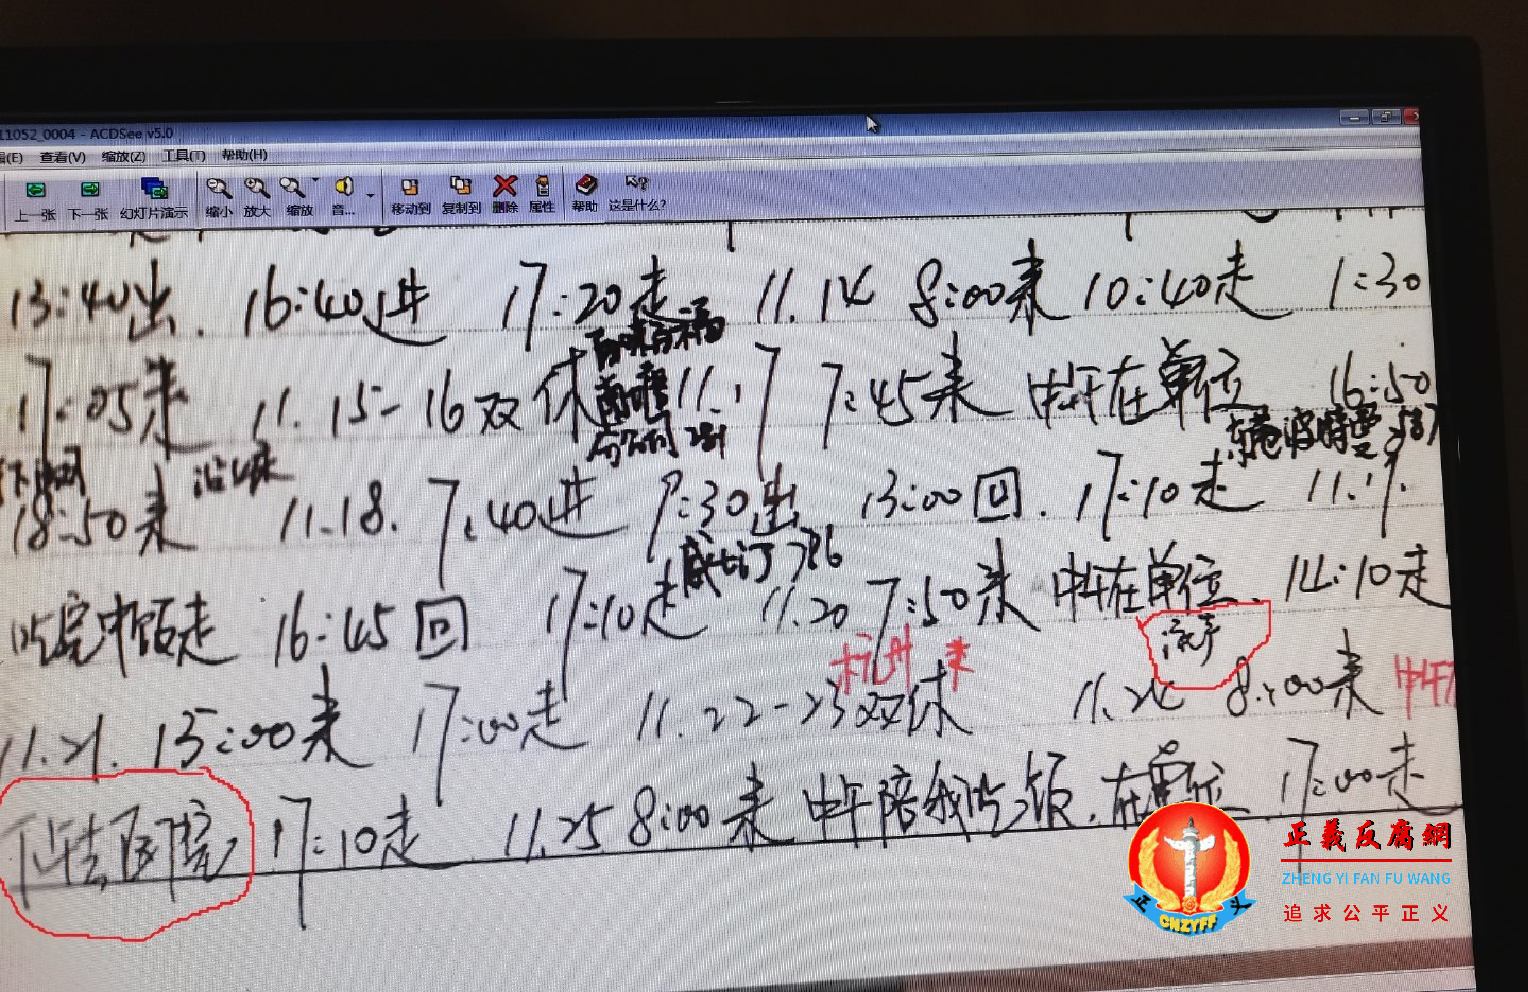 11052_0004 - ACDSee v5.0
查看(V) 缩放(Z) 工具(T) 帮助(H)
上一张 下一张 幻灯片演示 缩小 放大 缩放 音... 移动到 复制到 删除 属性 帮助 这是什么?
13:40出. 16:40进 17:20走 11.14 8:00来 10:40走 1:30
17:05来 11.15-16双休 11.17 7:45来 中午在单位 16:50
18:50来 11.18. 7:40进 9:30出 13:00回. 17:10走 11.19.
吃完中饭走 16:45回 17:10走 11.20 7:50来 中午在单位. 14:10走
流产
来
11.21. 13:00来 17:00走 11.22-23双休 11.24 8:00来 中午
下午去医院 17:10走 11.25 8:00来 中午陪我吃饭. 在单位 17:00走
正義反腐網
ZHENG YI FAN FU WANG
追求公平正义
正 CNZYFF 义